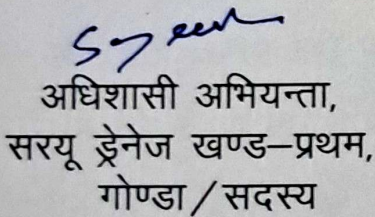 अधिशासी अभियन्ता,
सरयू ड्रेनेज खण्ड–प्रथम,
गोण्डा / सदस्य